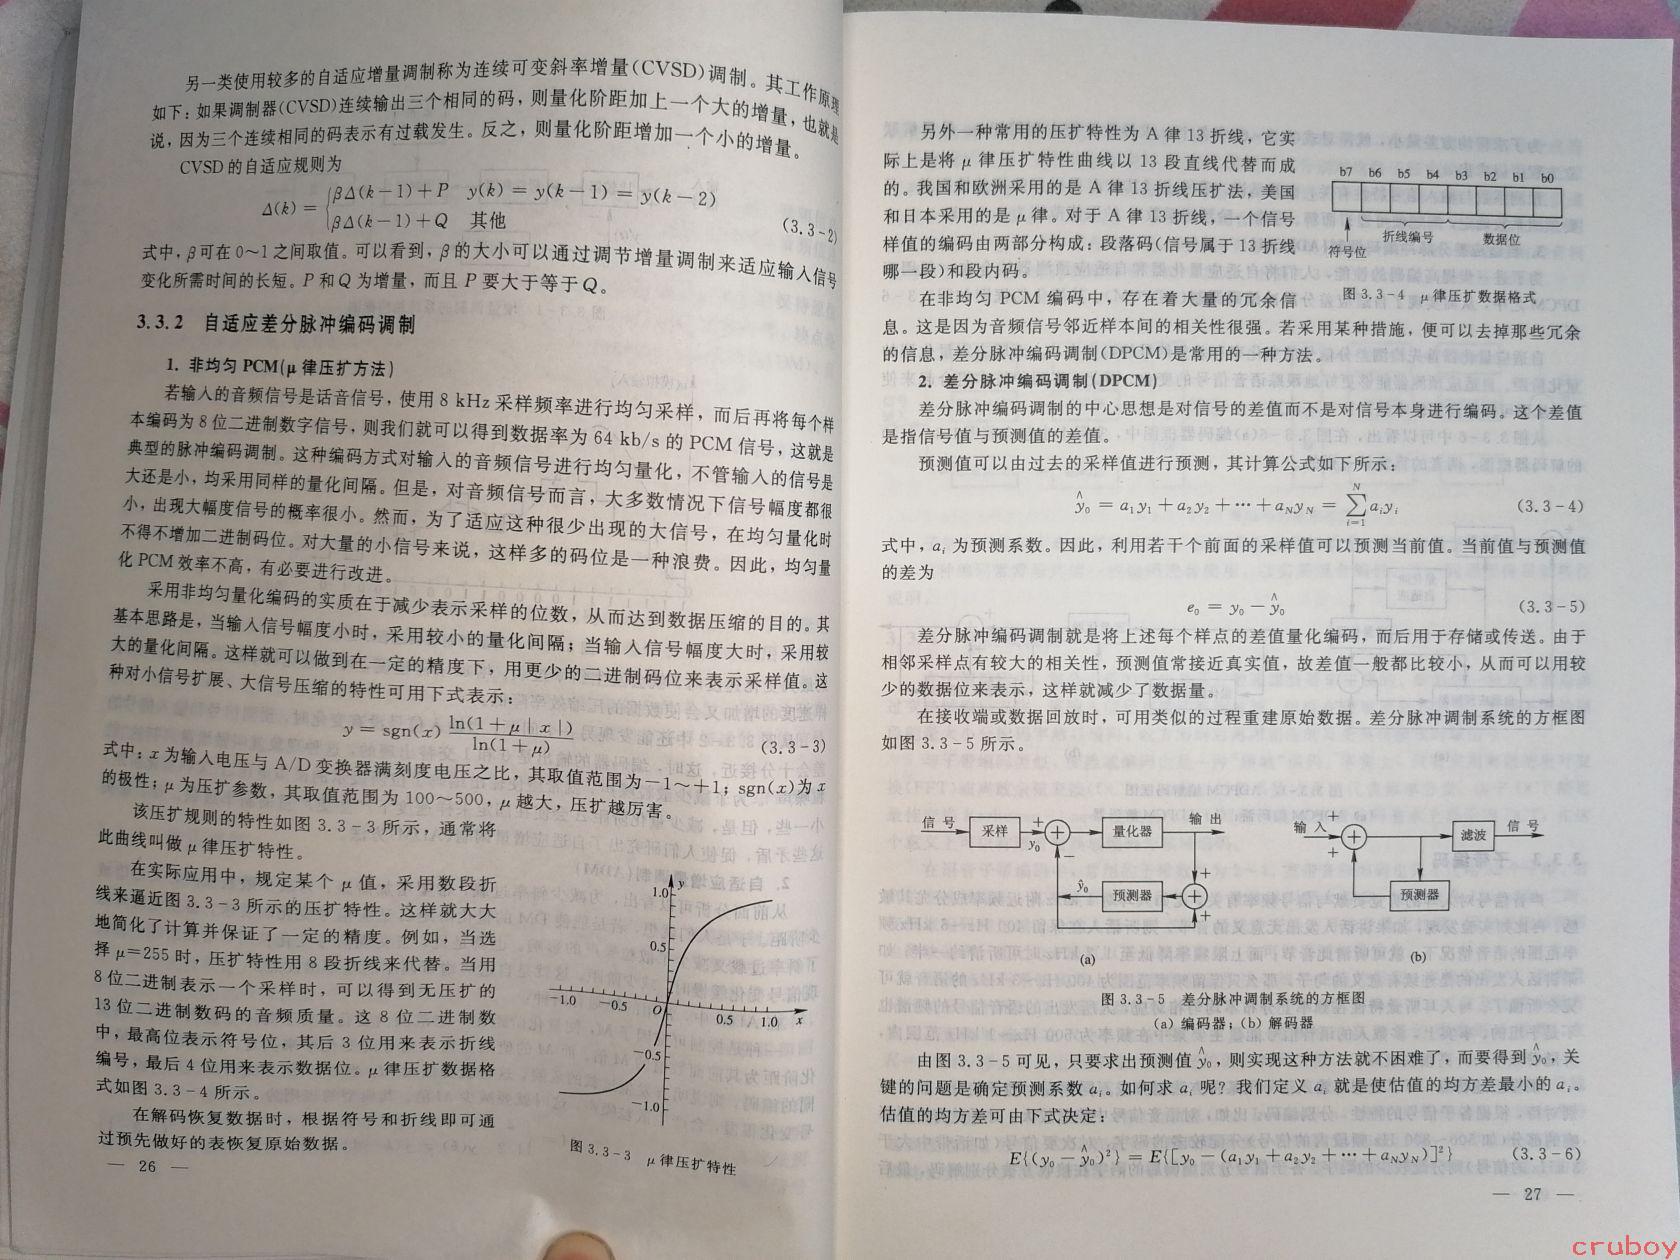 另一类使用较多的自适应增量调制称为连续可变斜率增量(CVSD)调制。其工作原理
如下:如果调制器(CVSD)连续输出三个相同的码,则量化阶距加上一个大的增量,也就是
说,因为三个连续相同的码表示有过载发生。反之,则量化阶距增加一个小的增量。
CVSD的自适应规则为
Δ(k) = {βΔ(k-1)+P y(k) = y(k-1) = y(k-2)
βΔ(k-1)+Q 其他 (3.3-2)
式中,β可在0~1之间取值。可以看到,β的大小可以通过调节增量调制来适应输入信号
变化所需时间的长短。P和Q为增量,而且P要大于等于Q。
3.3.2 自适应差分脉冲编码调制
1. 非均匀PCM(μ律压扩方法)
若输入的音频信号是话音信号,使用8 kHz采样频率进行均匀采样,而后再将每个样
本编码为8位二进制数字信号,则我们就可以得到数据率为64 kb/s的PCM信号,这就是
典型的脉冲编码调制。这种编码方式对输入的音频信号进行均匀量化,不管输入的信号是
大还是小,均采用同样的量化间隔。但是,对音频信号而言,大多数情况下信号幅度都很
小,出现大幅度信号的概率很小。然而,为了适应这种很少出现的大信号,在均匀量化时
不得不增加二进制码位。对大量的小信号来说,这样多的码位是一种浪费。因此,均匀量
化PCM效率不高,有必要进行改进。
采用非均匀量化编码的实质在于减少表示采样的位数,从而达到数据压缩的目的。其
基本思路是,当输入信号幅度小时,采用较小的量化间隔;当输入信号幅度大时,采用较
大的量化间隔。这样就可以做到在一定的精度下,用更少的二进制码位来表示采样值。这
种对小信号扩展、大信号压缩的特性可用下式表示:
y = sgn(x) ln(1+μ|x|) / ln(1+μ) (3.3-3)
式中:x为输入电压与A/D变换器满刻度电压之比,其取值范围为-1~+1;sgn(x)为x
的极性;μ为压扩参数,其取值范围为100~500,μ越大,压扩越厉害。
该压扩规则的特性如图3.3-3所示,通常将
此曲线叫做μ律压扩特性。
在实际应用中,规定某个μ值,采用数段折
线来逼近图3.3-3所示的压扩特性。这样就大大
地简化了计算并保证了一定的精度。例如,当选
择μ=255时,压扩特性用8段折线来代替。当用
8位二进制表示一个采样时,可以得到无压扩的
13位二进制数码的音频质量。这8位二进制数
中,最高位表示符号位,其后3位用来表示折线
编号,最后4位用来表示数据位。μ律压扩数据格
式如图3.3-4所示。
在解码恢复数据时,根据符号和折线即可通
过预先做好的表恢复原始数据。
1.0 y
0.5
-1.0 -0.5 O 0.5 1.0 x
-0.5
-1.0
图3.3-3 μ律压扩特性
— 26 —
另外一种常用的压扩特性为A律13折线,它实
际上是将μ律压扩特性曲线以13段直线代替而成
的。我国和欧洲采用的是A律13折线压扩法,美国
和日本采用的是μ律。对于A律13折线,一个信号
样值的编码由两部分构成:段落码(信号属于13折线
哪一段)和段内码。
b7 b6 b5 b4 b3 b2 b1 b0
折线编号 数据位
符号位
图3.3-4 μ律压扩数据格式
在非均匀PCM编码中,存在着大量的冗余信
息。这是因为音频信号邻近样本间的相关性很强。若采用某种措施,便可以去掉那些冗余
的信息,差分脉冲编码调制(DPCM)是常用的一种方法。
2. 差分脉冲编码调制(DPCM)
差分脉冲编码调制的中心思想是对信号的差值而不是对信号本身进行编码。这个差值
是指信号值与预测值的差值。
预测值可以由过去的采样值进行预测,其计算公式如下所示:
ŷ₀ = a₁y₁ + a₂y₂ + ⋯ + a_N y_N = ∑_{i=1}^{N} aᵢyᵢ (3.3-4)
式中,aᵢ为预测系数。因此,利用若干个前面的采样值可以预测当前值。当前值与预测值
的差为
e₀ = y₀ - ŷ₀ (3.3-5)
差分脉冲编码调制就是将上述每个样点的差值量化编码,而后用于存储或传送。由于
相邻采样点有较大的相关性,预测值常接近真实值,故差值一般都比较小,从而可以用较
少的数据位来表示,这样就减少了数据量。
在接收端或数据回放时,可用类似的过程重建原始数据。差分脉冲调制系统的方框图
如图3.3-5所示。
信号 采样 y₀ + - 量化器 输出
ŷ₀ 预测器 + +
(a)
输入 + + 滤波 信号
预测器
(b)
图3.3-5 差分脉冲调制系统的方框图
(a) 编码器;(b) 解码器
由图3.3-5可见,只要求出预测值ŷ₀,则实现这种方法就不困难了,而要得到ŷ₀,关
键的问题是确定预测系数aᵢ。如何求aᵢ呢?我们定义aᵢ就是使估值的均方差最小的aᵢ。
估值的均方差可由下式决定:
E{(y₀ - ŷ₀)²} = E{[y₀ - (a₁y₁ + a₂y₂ + ⋯ + a_N y_N)]²} (3.3-6)
— 27 —
cruboy